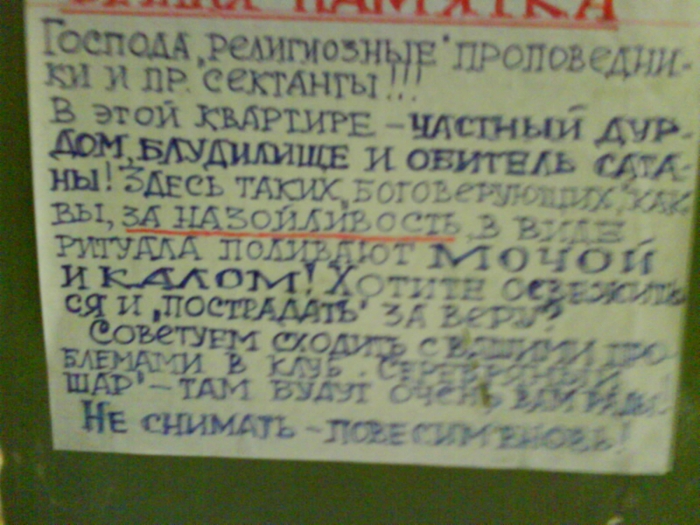 ПАМЯТКА
ГОСПОДА, „РЕЛИГИОЗНЫЕ" ПРОПОВЕДНИ-
КИ И ПР. СЕКТАНТЫ!!!
В ЭТОЙ КВАРТИРЕ – ЧАСТНЫЙ ДУР-
ДОМ, БЛУДИЛИЩЕ И ОБИТЕЛЬ САТА-
НЫ! ЗДЕСЬ ТАКИХ „БОГОВЕРУЮЩИХ", КАК
ВЫ, ЗА НАЗОЙЛИВОСТЬ, В ВИДЕ
РИТУАЛА ПОЛИВАЮТ МОЧОЙ
И КАЛОМ! ХОТИТЕ ОСВЕЖИТЬ-
СЯ И „ПОСТРАДАТЬ" ЗА ВЕРУ?
СОВЕТУЕМ СХОДИТЬ С ВАШИМИ ПРО-
БЛЕМАМИ В КЛУБ „СЕРЕБРЯНЫЙ
ШАР" – ТАМ БУДУТ ОЧЕНЬ ВАМ РАДЫ.
НЕ СНИМАТЬ – ПОВЕСИМ ВНОВЬ!